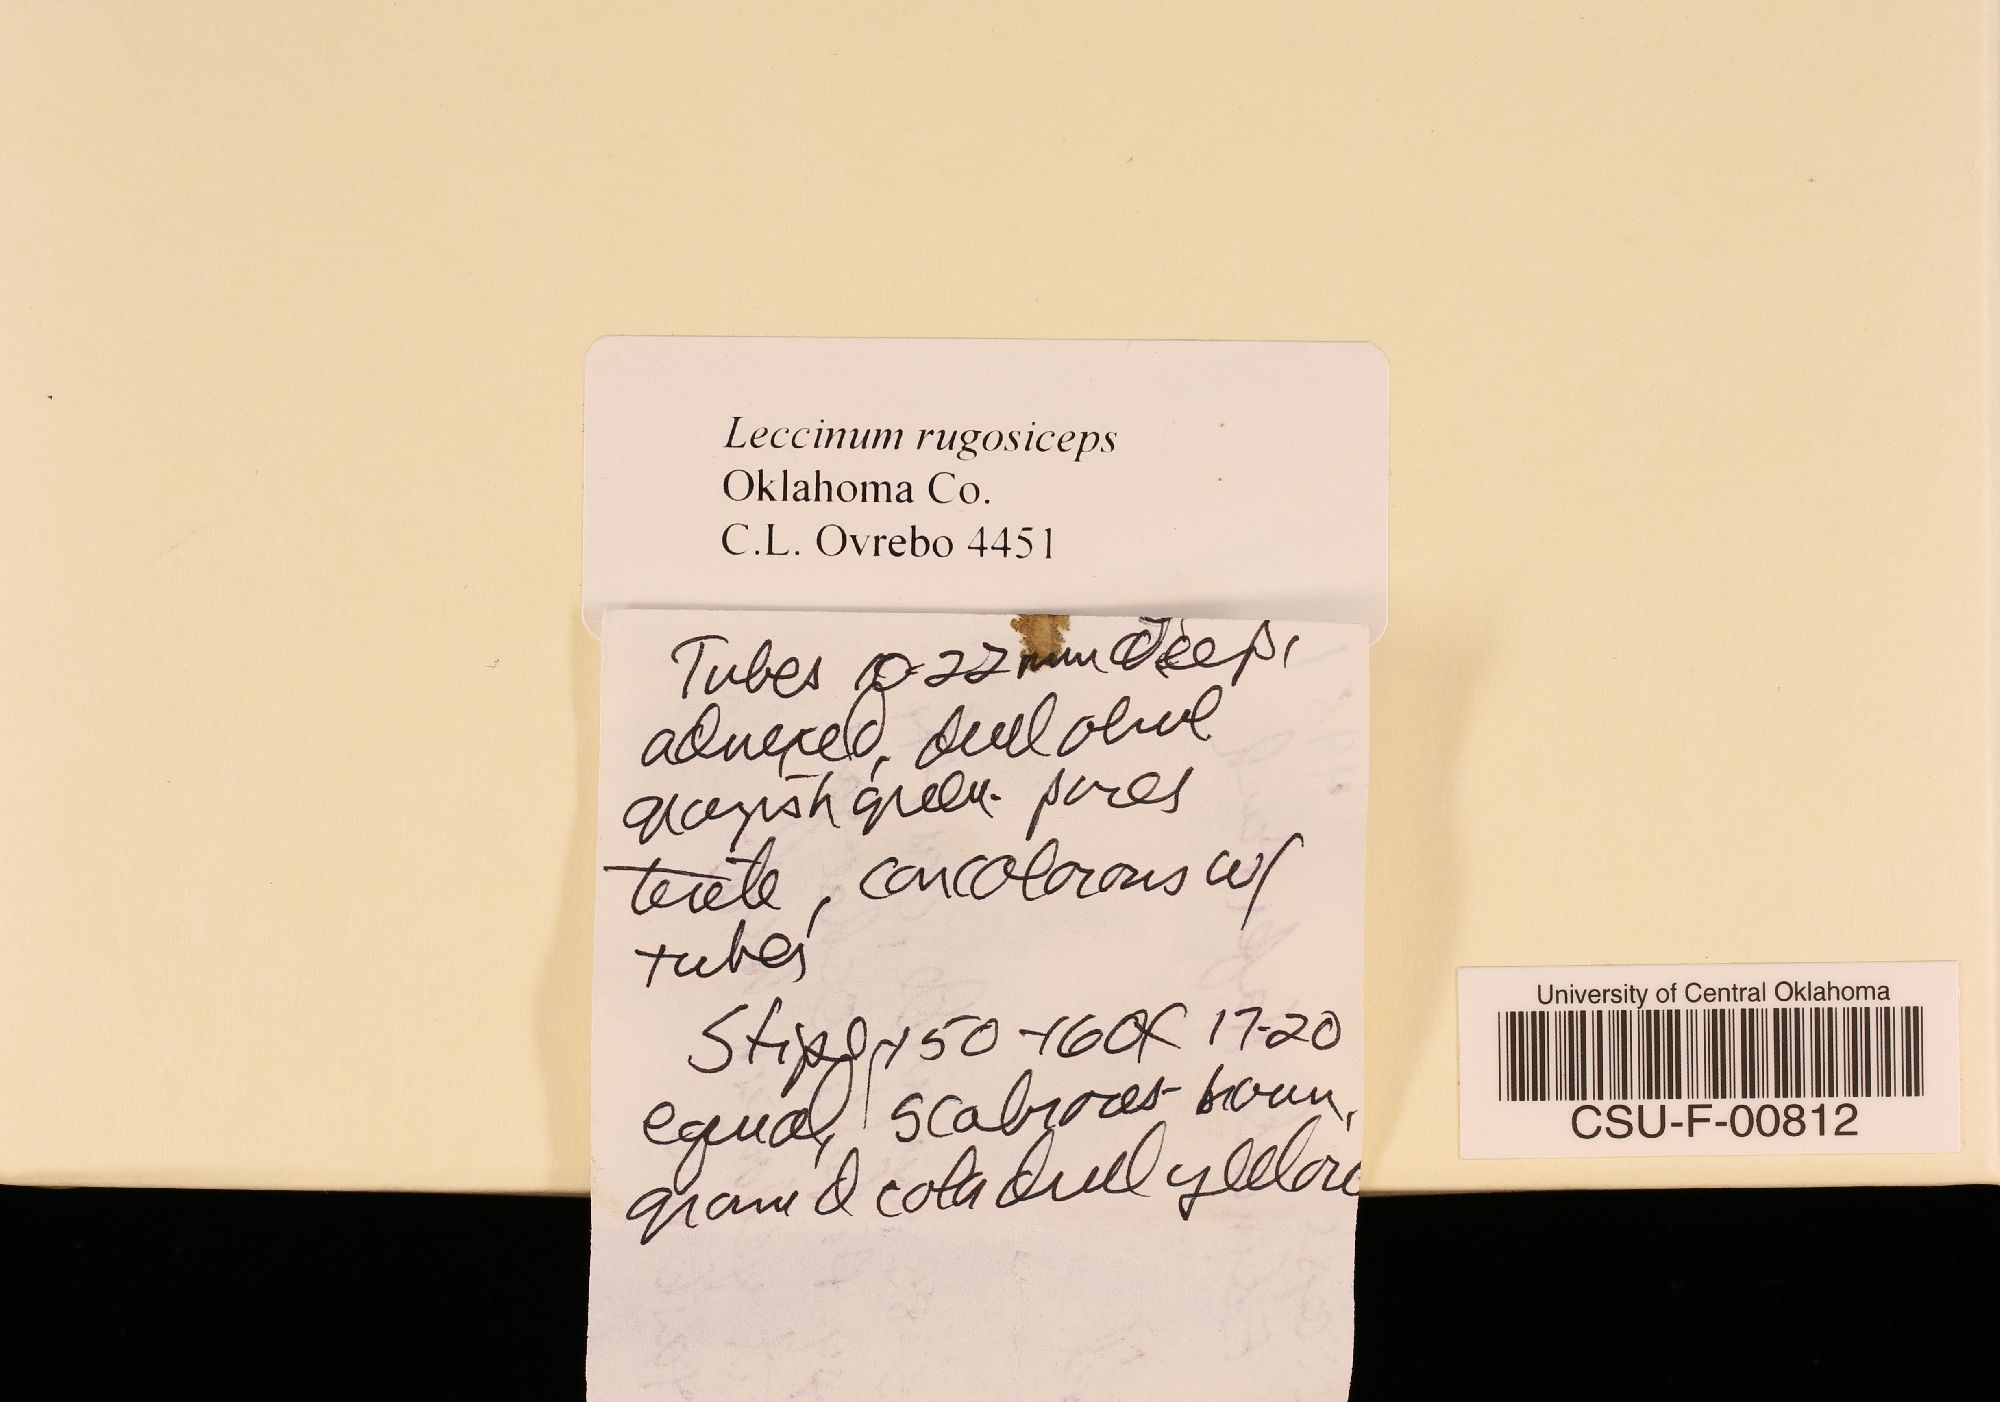 Leccinum rugosiceps
Oklahoma Co.
C.L. Ovrebo 4451
Tubes 22 mm deep,
adnexed, dull olive
grayish green. pores
terete, concolorous w/
tubes
Stipe 50 17-20
equal, scabrous brown,
ground color dull yellow
University of Central Oklahoma
CSU-F-00812